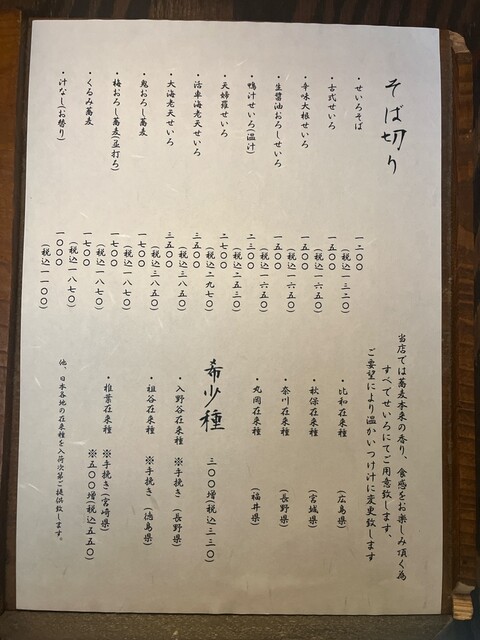 そば切り
・せいろそば
一二〇〇
(税込一三二〇)
・古式せいろ
一五〇〇
(税込一六五〇)
・辛味大根せいろ
一五〇〇
(税込一六五〇)
・生醬油おろしせいろ
一五〇〇
(税込一六五〇)
・鴨汁せいろ(温汁)
二三〇〇
(税込二五三〇)
・天婦羅せいろ
二七〇〇
(税込二九七〇)
・活車海老天せいろ
三五〇〇
(税込三八五〇)
・大海老天せいろ
三五〇〇
(税込三八五〇)
・鬼おろし蕎麦
一七〇〇
(税込一八七〇)
・梅おろし蕎麦(並打ち)
一七〇〇
(税込一八七〇)
・くるみ蕎麦
一七〇〇
(税込一八七〇)
・汁なし(お替り)
一〇〇〇
(税込一一〇〇)
当店では蕎麦本来の香り、食感をお楽しみ頂く為
すべてせいろにてご用意致します、
ご要望により温かいつけ汁に変更致します
・比和在来種 (広島県)
・秋保在来種 (宮城県)
・奈川在来種 (長野県)
・丸岡在来種 (福井県)
希少種 三〇〇増(税込三三〇)
・入野谷在来種 ※手挽き (長野県)
・祖谷在来種 ※手挽き (徳島県)
・椎葉在来種 ※手挽き(宮崎県)
※五〇〇増(税込五五〇)
他、日本各地の在来種を入荷次第ご提供致します。